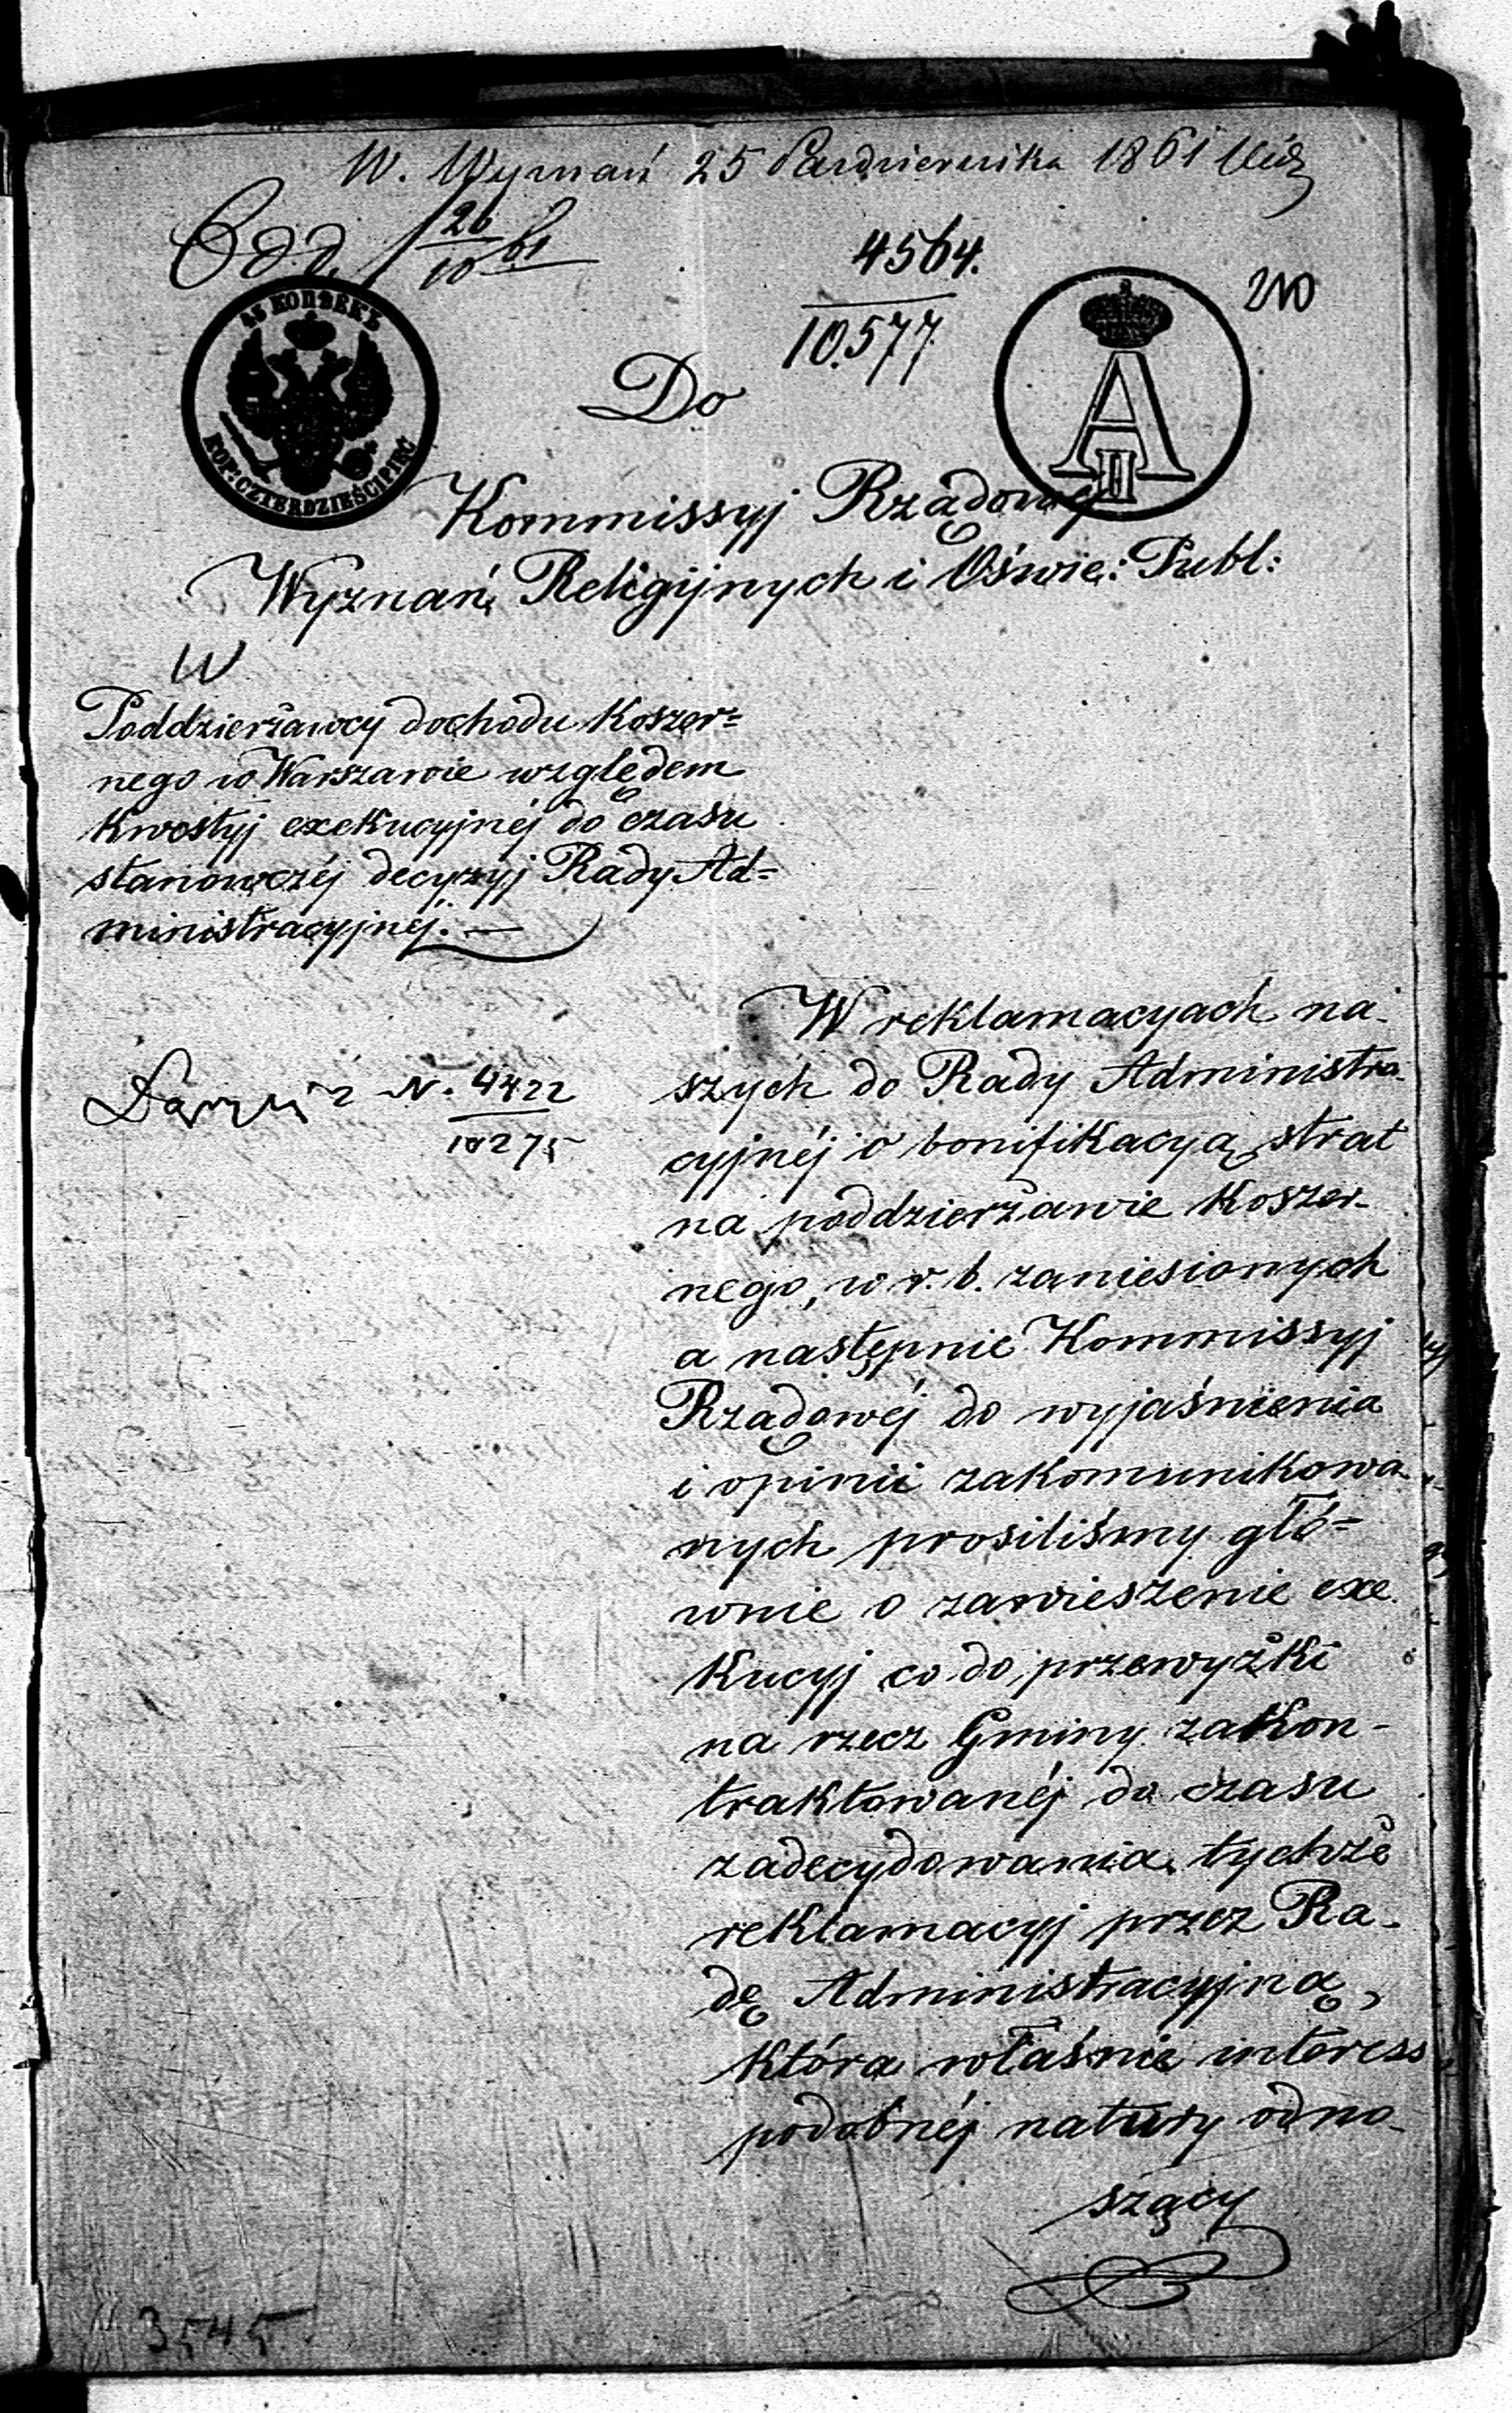 W. Wyznań 25 Października 1861
Odd. 26/10 61
4564.
10.577
210
45 КОПѢЕКЪ
KOP: CZTERDZIEŚCI PIĘĆ
A II
Do
Kommissyj Rządowej
Wyznań Religijnych i Oświe: Publ:
W
Poddzierżawcy dochodu Koszer=
nego w Warszawie względem
kwestyj exekucyjnéj do czasu
stanowczéj decyzyj Rady Ad=
ministracyjnéj. —
W reklamacyach na-
szych do Rady Administra-
cyjnéj o bonifikacyą strat
na poddzierżawie Koszer-
nego, w r. b. zaniesionych
a następnie Kommissyj
Rządowéj do wyjaśnienia
i opinii zakomunikowa-
nych prosiliśmy głó=
wnie o zawieszenie exe
kucyj co do przewyżki
na rzecz Gminy zakon-
traktowanéj do czasu
zadecydowania tychże
reklamacyj przez Ra-
dę Administracyjną,
która właśnie interess
podobnéj natury odno-
szący
N. 4422
10275
3545